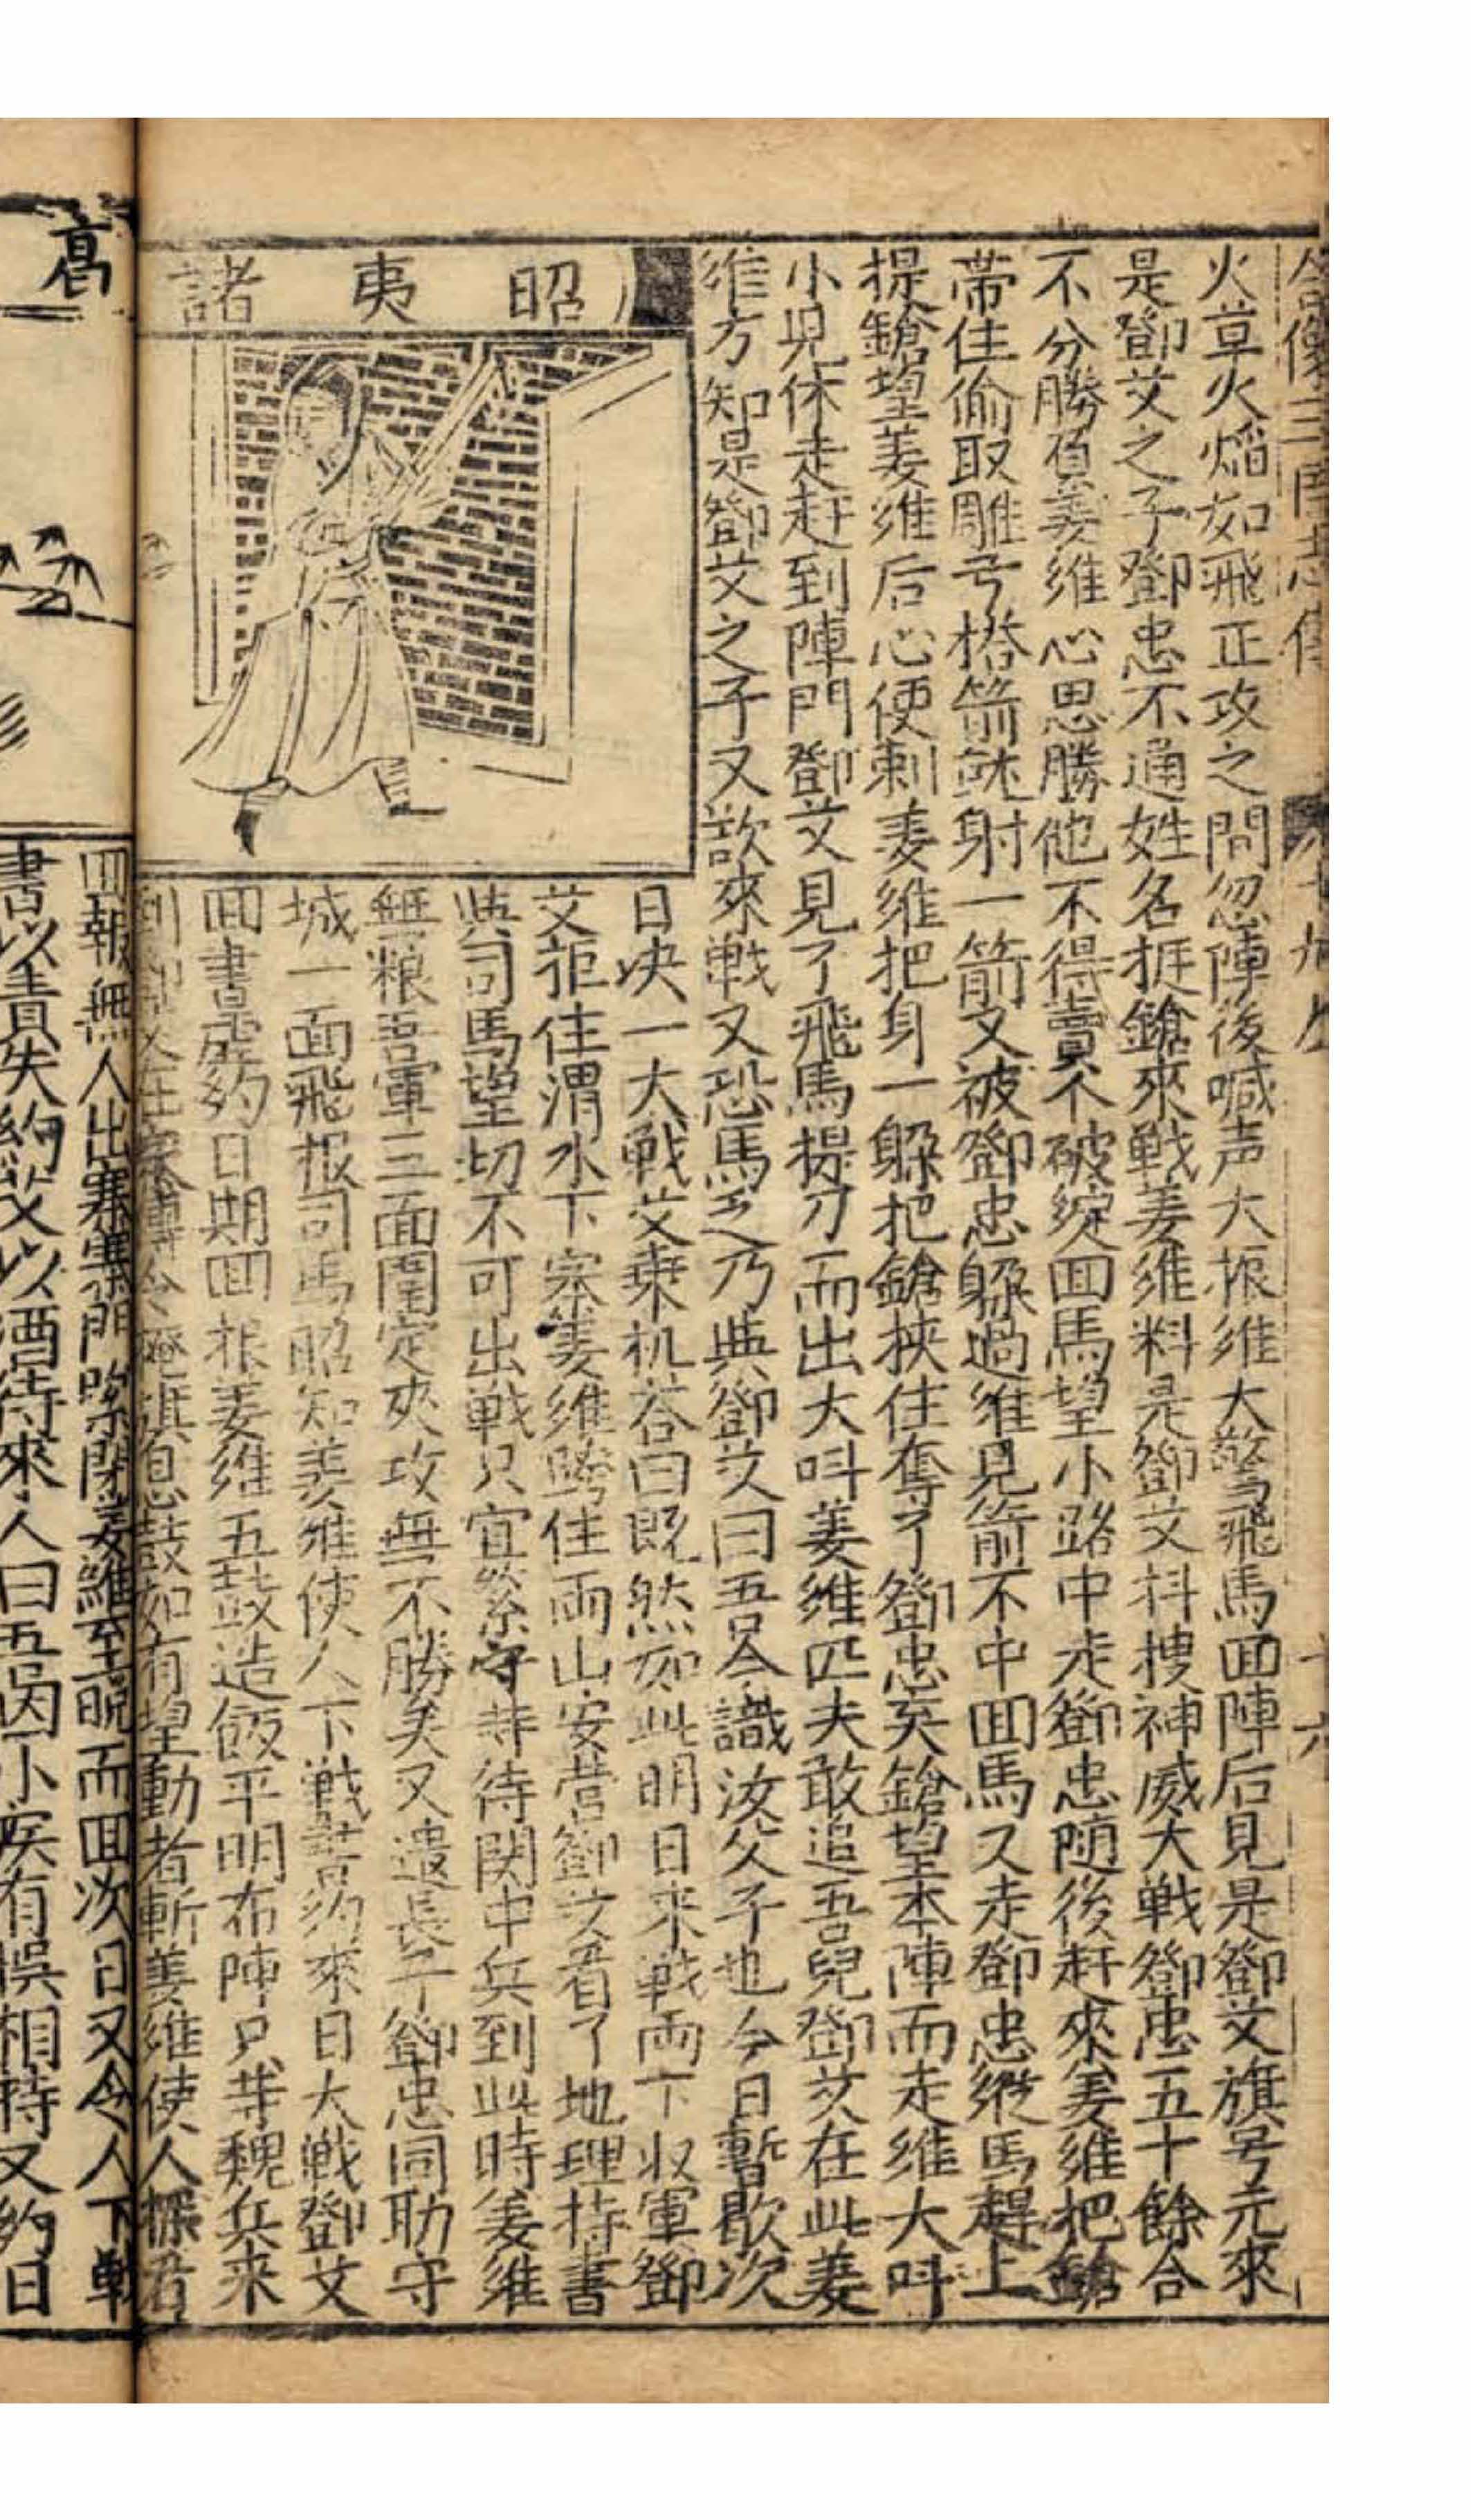 像三國志傳
十九
十六
火草火熖如飛正攻之間忽陣後喊声大振維大驚飛馬囬陣后見是鄧艾旗号元來
是鄧艾之子鄧忠不通姓名挺鎗來戦姜維料是鄧艾抖搜神威大戦鄧忠三五十餘合
不分勝負姜維心思勝他不得賣个破綻囬馬望小路中走鄧忠随後赶來姜維把鎗
帶住偷取雕弓搭箭就射一箭又被鄧忠躱過維見箭不中囬馬又走鄧忠縱馬趕上
提鎗望姜維后心便刺姜維把身一躱把鎗挾住奪了鄧忠矣鎗望本陣而走維大呌
小児休走赶到陣門鄧艾見了飛馬提刀而出大呌姜維匹夫敢追吾兒鄧艾在此姜
維方知是鄧艾之子又欲來戦又恐馬乏乃與鄧艾曰吾今識汝父子也今日暫歇次
日决一大戦艾乗机荅曰既然如此明日来戦両下収軍鄧
艾拒住渭水下寨姜維跨住両山安营鄧艾看了地理持書
與司馬望切不可出戦只宜緊守䓁待関中兵到此時姜維
無粮吾軍三面圍定夾攻無不勝矣又遣長子鄧忠同助守
城一面飛报司馬昭知姜維使人下戦書約來日大戦鄧艾
囬書䨇約日期囬报姜維五鼓造飯平明布陣只䓁魏兵来
到鄧艾在寨傳令掩旗息鼓如有望動者斬姜維使人探看
昭夷諸
葛
囬報無人出寨寨門緊閉姜維至晚而囬次日又令人下戦
書以責失約艾以酒待來人曰吾因小疾有悞相持又約日